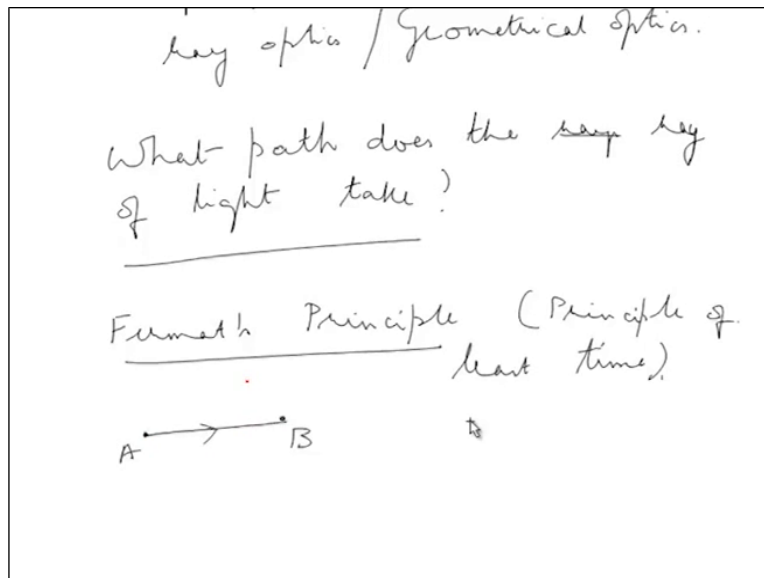 ray optics / Geometrical optics.
What path does the ray
of light take?
Fermat's Principle (Principle of
least time).
A B